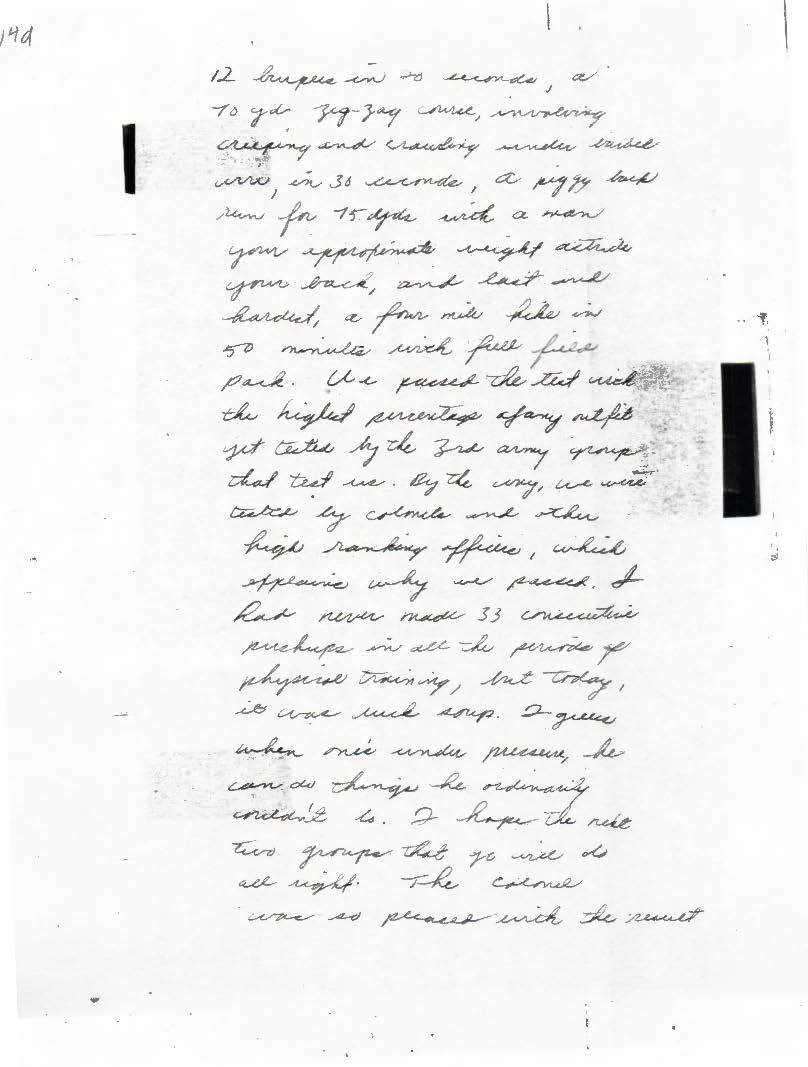 149
12 burpees in 20 seconds, a
70 yd zig-zag course, involving
creeping and crawling under barbed
wire, in 30 seconds, a piggy back
run for 75 yds with a man
your approximate weight astride
your back, and last and
hardest, a four mile hike in
50 minutes with full field
pack. We passed the test with
the highest percentage of any outfit
yet tested by the 3rd army group
that test us. By the way, we were
tested by colonels and other
high ranking officers, which
explains why we passed. I
had never made 33 consecutive
pushups in all the periods of
physical training, but today,
it was duck soup. I guess
when one's under pressure, he
can do things he ordinarily
couldn't do. I hope the next
two groups that go will do
all right. The colonel
was so pleased with the result